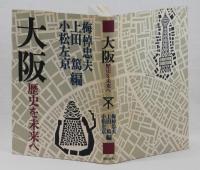 梅棹忠夫
上田 篤 編
小松左京
大阪
歴史を未来へ
大阪
歴史を未来へ
梅棹忠夫
上田 篤
小松左京
編